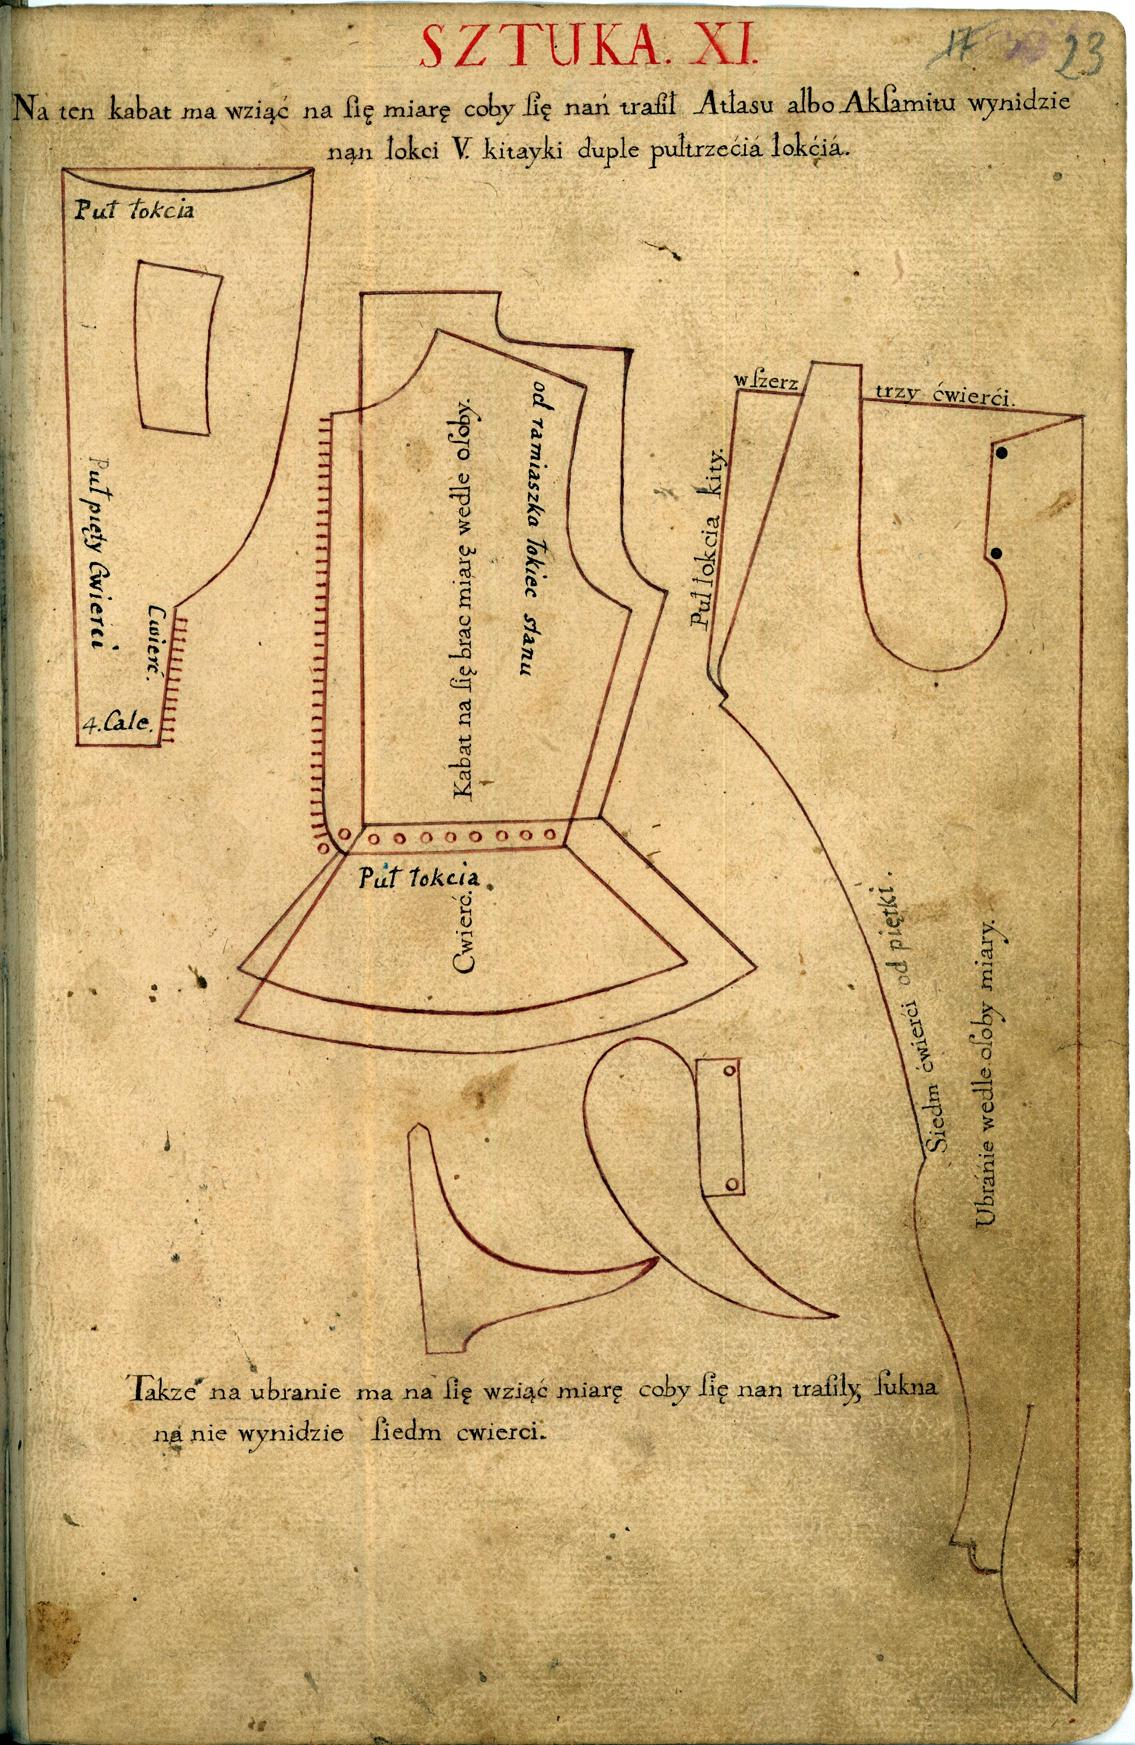 SZTUKA. XI.
23
Na ten kabat ma wziąć na ſię miarę coby ſię nań trafił Atłasu albo Akſamitu wynidzie
nąn łokci V. kitayki duple pułtrzećiá łokćiá.
Puł łokcia
Puł pięty Ćwierci
Ćwierć.
4. Cale.
Kabat na ſię brac miarę wedle oſoby.
od ramiaszka łokiec stanu
Puł łokcia.
Cwierć.
wſzerz
trzy ćwierći.
Puł łokcia kity.
Siedm ćwierći od piętki.
Ubránie wedle oſoby miary.
Takze na ubranie ma na ſię wziąć miarę coby ſię nan trafiły, ſukna
ną nie wynidzie ſiedm cwierci.